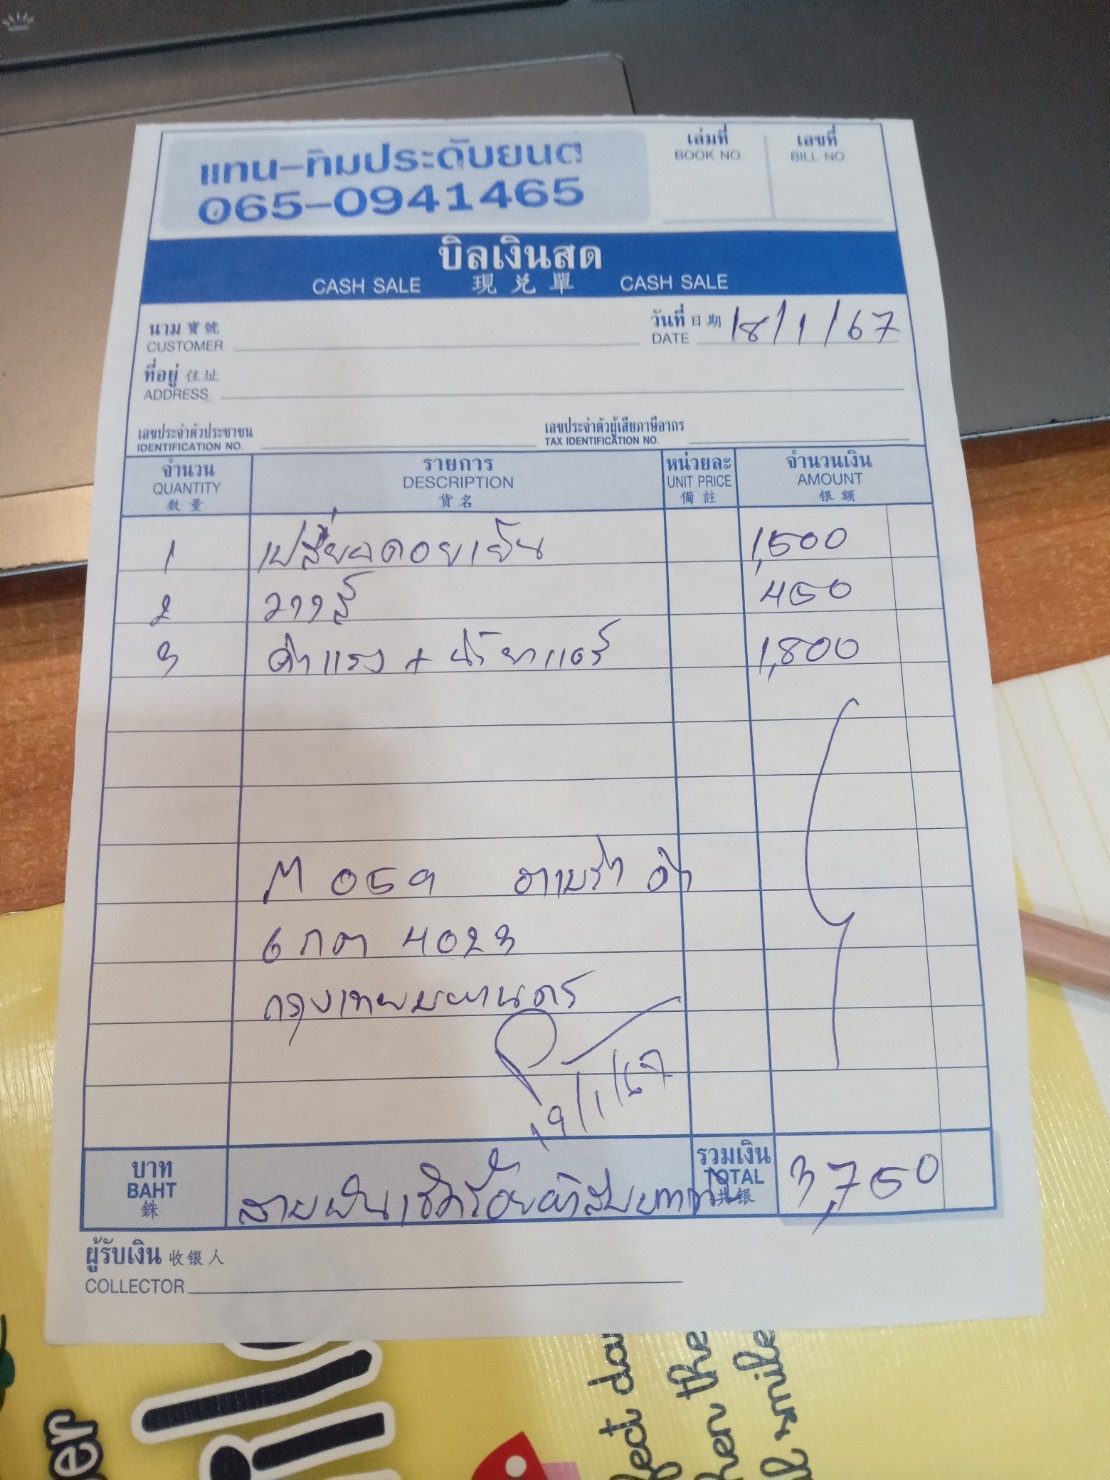 แทน-ทิมประดับยนต์
065-0941465
เล่มที่
BOOK NO.
เลขที่
BILL NO
บิลเงินสด
CASH SALE 現兌單 CASH SALE
นาม 寶號
CUSTOMER
วันที่ 日期 18/1/67
DATE
ที่อยู่ 住址
ADDRESS
เลขประจำตัวประชาชน
IDENTIFICATION NO.
เลขประจำตัวผู้เสียภาษีอากร
TAX IDENTIFICATION NO.
จำนวน
QUANTITY
數量
รายการ
DESCRIPTION
貨名
หน่วยละ
UNIT PRICE
備註
จำนวนเงิน
AMOUNT
银額
1 เปลี่ยนคอยเย็น 1,500
2 วาวล์ 450
3 ค่าแรง + น้ำยาแอร์ 1,800
M 059 ดำ
6 กต 4023
กรุงเทพมหานคร
19/1/67
บาท
BAHT
銖
สามพันเจ็ดร้อยห้าสิบบาท
รวมเงิน
TOTAL
3,750
ผู้รับเงิน 收银人
COLLECTOR